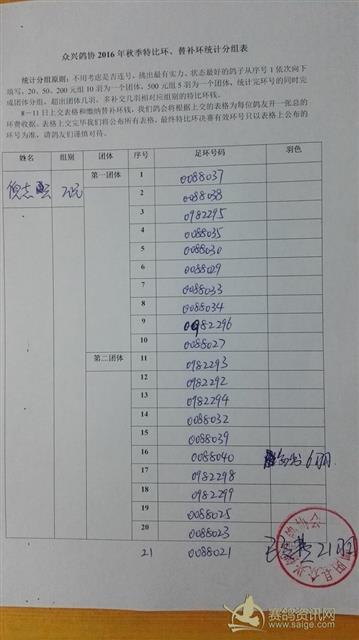 众兴鸽协 2016 年秋季特比环、替补环统计分组表
统计分组原则：不用考虑是否连号，挑出最有实力、状态最好的鸽子从序号 1 依次向下
填写，20、50、200 元组 10 羽为一个团体，500 元组 5 羽为一个团体，统计完环号的同时完
成团体分组，超出团体几羽，多补交几羽相对应组别的特比环钱。
8—11 日上交表格和缴纳替补环钱，我们鸽会将根据上交的表格为每位鸽友开一张总的
环费收据。表格上交完毕我们将公布所有表格，最终特比环决赛有效环号只以表格上公布的
环号为准，请鸽友们谨慎对待。
姓名 组别 团体 序号 足环号码 羽色
第一团体 1 0088037
2 0088038
3 0982295
4 0088035
5 0088030
6 0088029
7 0088033
8 0088034
9 0982296
10 0088027
第二团体 11 0982293
12 0982292
13 0982294
14 0088032
15 0088039
16 0088040
17 0982298
18 0982299
19 0088025
20 0088023
21 0088021
赛鸽资讯网
www.saige.com